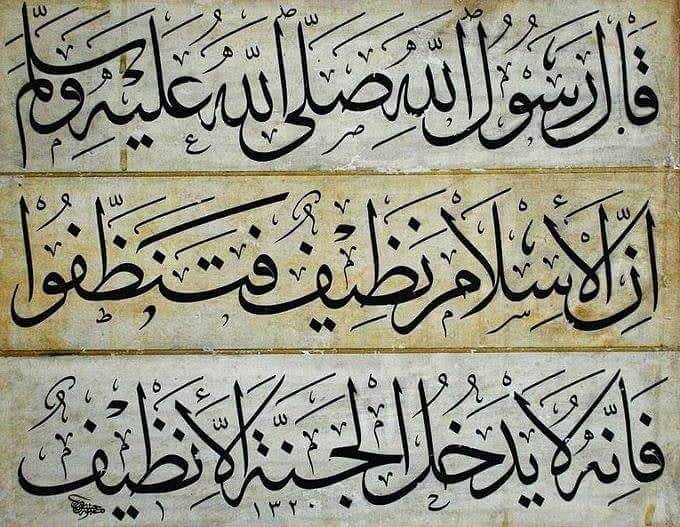 قَالَ رَسُولُ اللّٰهِ صَلَّى اللّٰهُ عَلَيْهِ وَسَلَّمَ
اِنَّ الْاِسْلَامَ نَظِيفٌ فَتَنَظَّفُوا
فَاِنَّهُ لَا يَدْخُلُ الْجَنَّةَ اِلَّا نَظِيفٌ
١٣٢٠